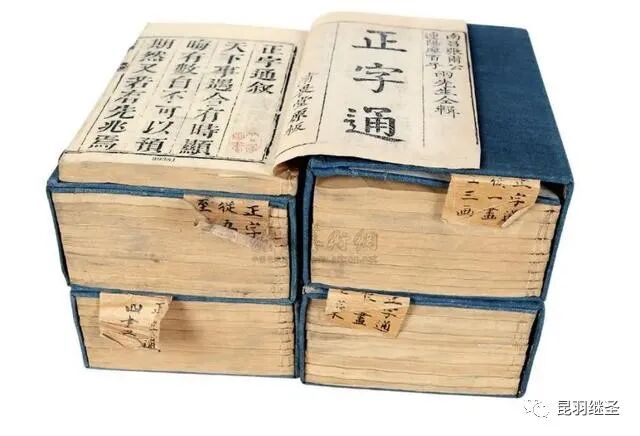 南昌張爾公
連陽廖百子
兩先生仝輯
正字通
堂原板
正字通敘
天下事遇合有時顯
晦有數自不可以預
期然又若有先兆焉
正字通
從一畫
三画
正字
從五
至
字通
畫
昆羽继圣